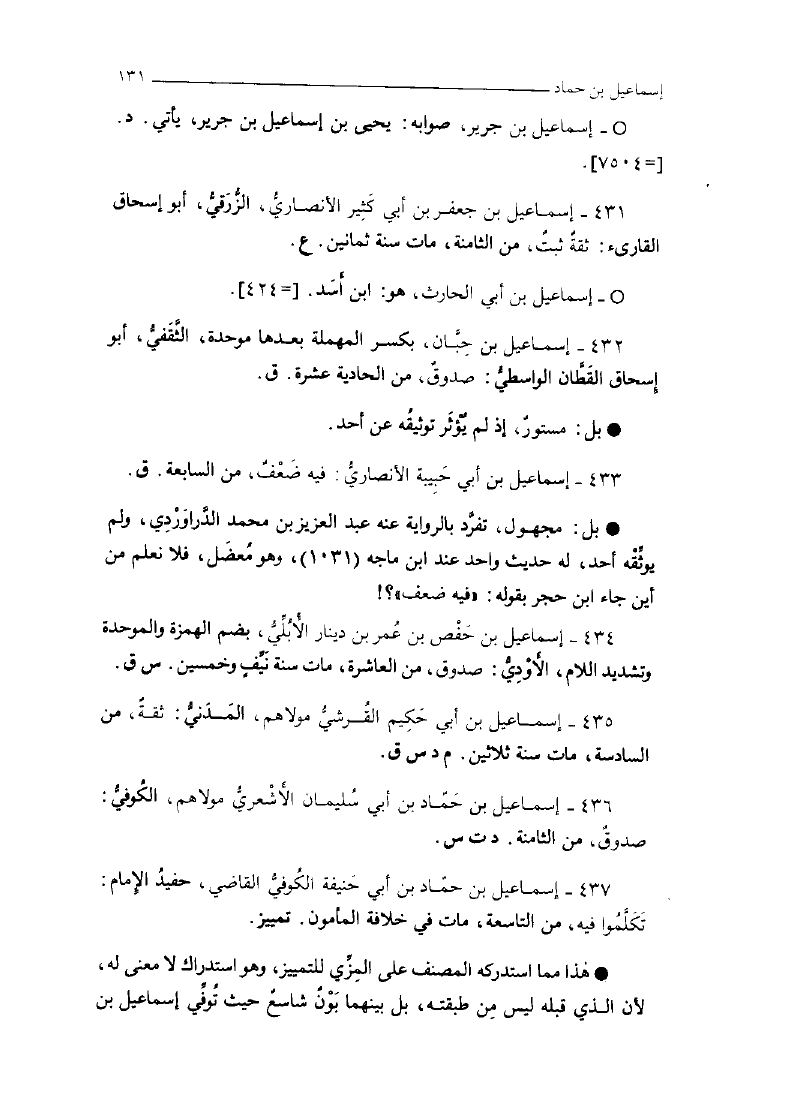 إسماعيل بن حماد ١٣١
○ ـ إسماعيل بن جرير، صوابه: يحيى بن إسماعيل بن جرير، يأتي. د.
[=٧٥٠٤].
٤٣١ ـ إسماعيل بن جعفر بن أبي كَثِير الأنصاريُّ، الزُّرَقيُّ، أبو إسحاق
القارىء: ثقةٌ ثبتٌ، من الثامنة، مات سنة ثمانين. ع.
○ ـ إسماعيل بن أبي الحارث، هو: ابن أَسَد. [=٤٢٤].
٤٣٢ ـ إسماعيل بن حِبَّان، بكسر المهملة بعدها موحدة، الثَّقَفيُّ، أبو
إسحاق القَطَّان الواسطيُّ: صدوقٌ، من الحادية عشرة. ق.
● بل: مستورٌ، إذ لم يُؤثَر توثيقُه عن أحد.
٤٣٣ ـ إسماعيل بن أبي حَبِيبة الأنصاريُّ: فيه ضَعْفٌ، من السابعة. ق.
● بل: مجهول، تفرَّد بالرواية عنه عبد العزيز بن محمد الدَّراوَرْدِي، ولم
يوثِّقْه أحد، له حديث واحد عند ابن ماجه (١٠٣١)، وهو مُعضَل، فلا نعلم من
أين جاء ابن حجر بقوله: «فيه ضعف»؟!
٤٣٤ ـ إسماعيل بن حَفْص بن عُمر بن دينار الأُبُلِّيُّ، بضم الهمزة والموحدة
وتشديد اللام، الأَوْدِيُّ: صدوق، من العاشرة، مات سنة نَيِّفٍ وخمسين. س ق.
٤٣٥ ـ إسماعيل بن أبي حَكِيم القُرشيُّ مولاهم، المَدَنيُّ: ثقةٌ، من
السادسة، مات سنة ثلاثين. م د س ق.
٤٣٦ ـ إسماعيل بن حَمَّاد بن أبي سُليمان الأَشْعريُّ مولاهم، الكُوفيُّ:
صدوقٌ، من الثامنة. د ت س.
٤٣٧ ـ إسماعيل بن حمَّاد بن أبي حَنيفة الكُوفيُّ القاضي، حفيدُ الإمام:
تَكَلَّمُوا فيه، من التاسعة، مات في خلافة المأمون. تمييز.
● هٰذا مما استدركه المصنف على المِزِّي للتمييز، وهو استدراك لا معنى له،
لأن الذي قبله ليس مِن طبقته، بل بينهما بَوْنٌ شاسعٌ حيث تُوفِّي إسماعيل بن